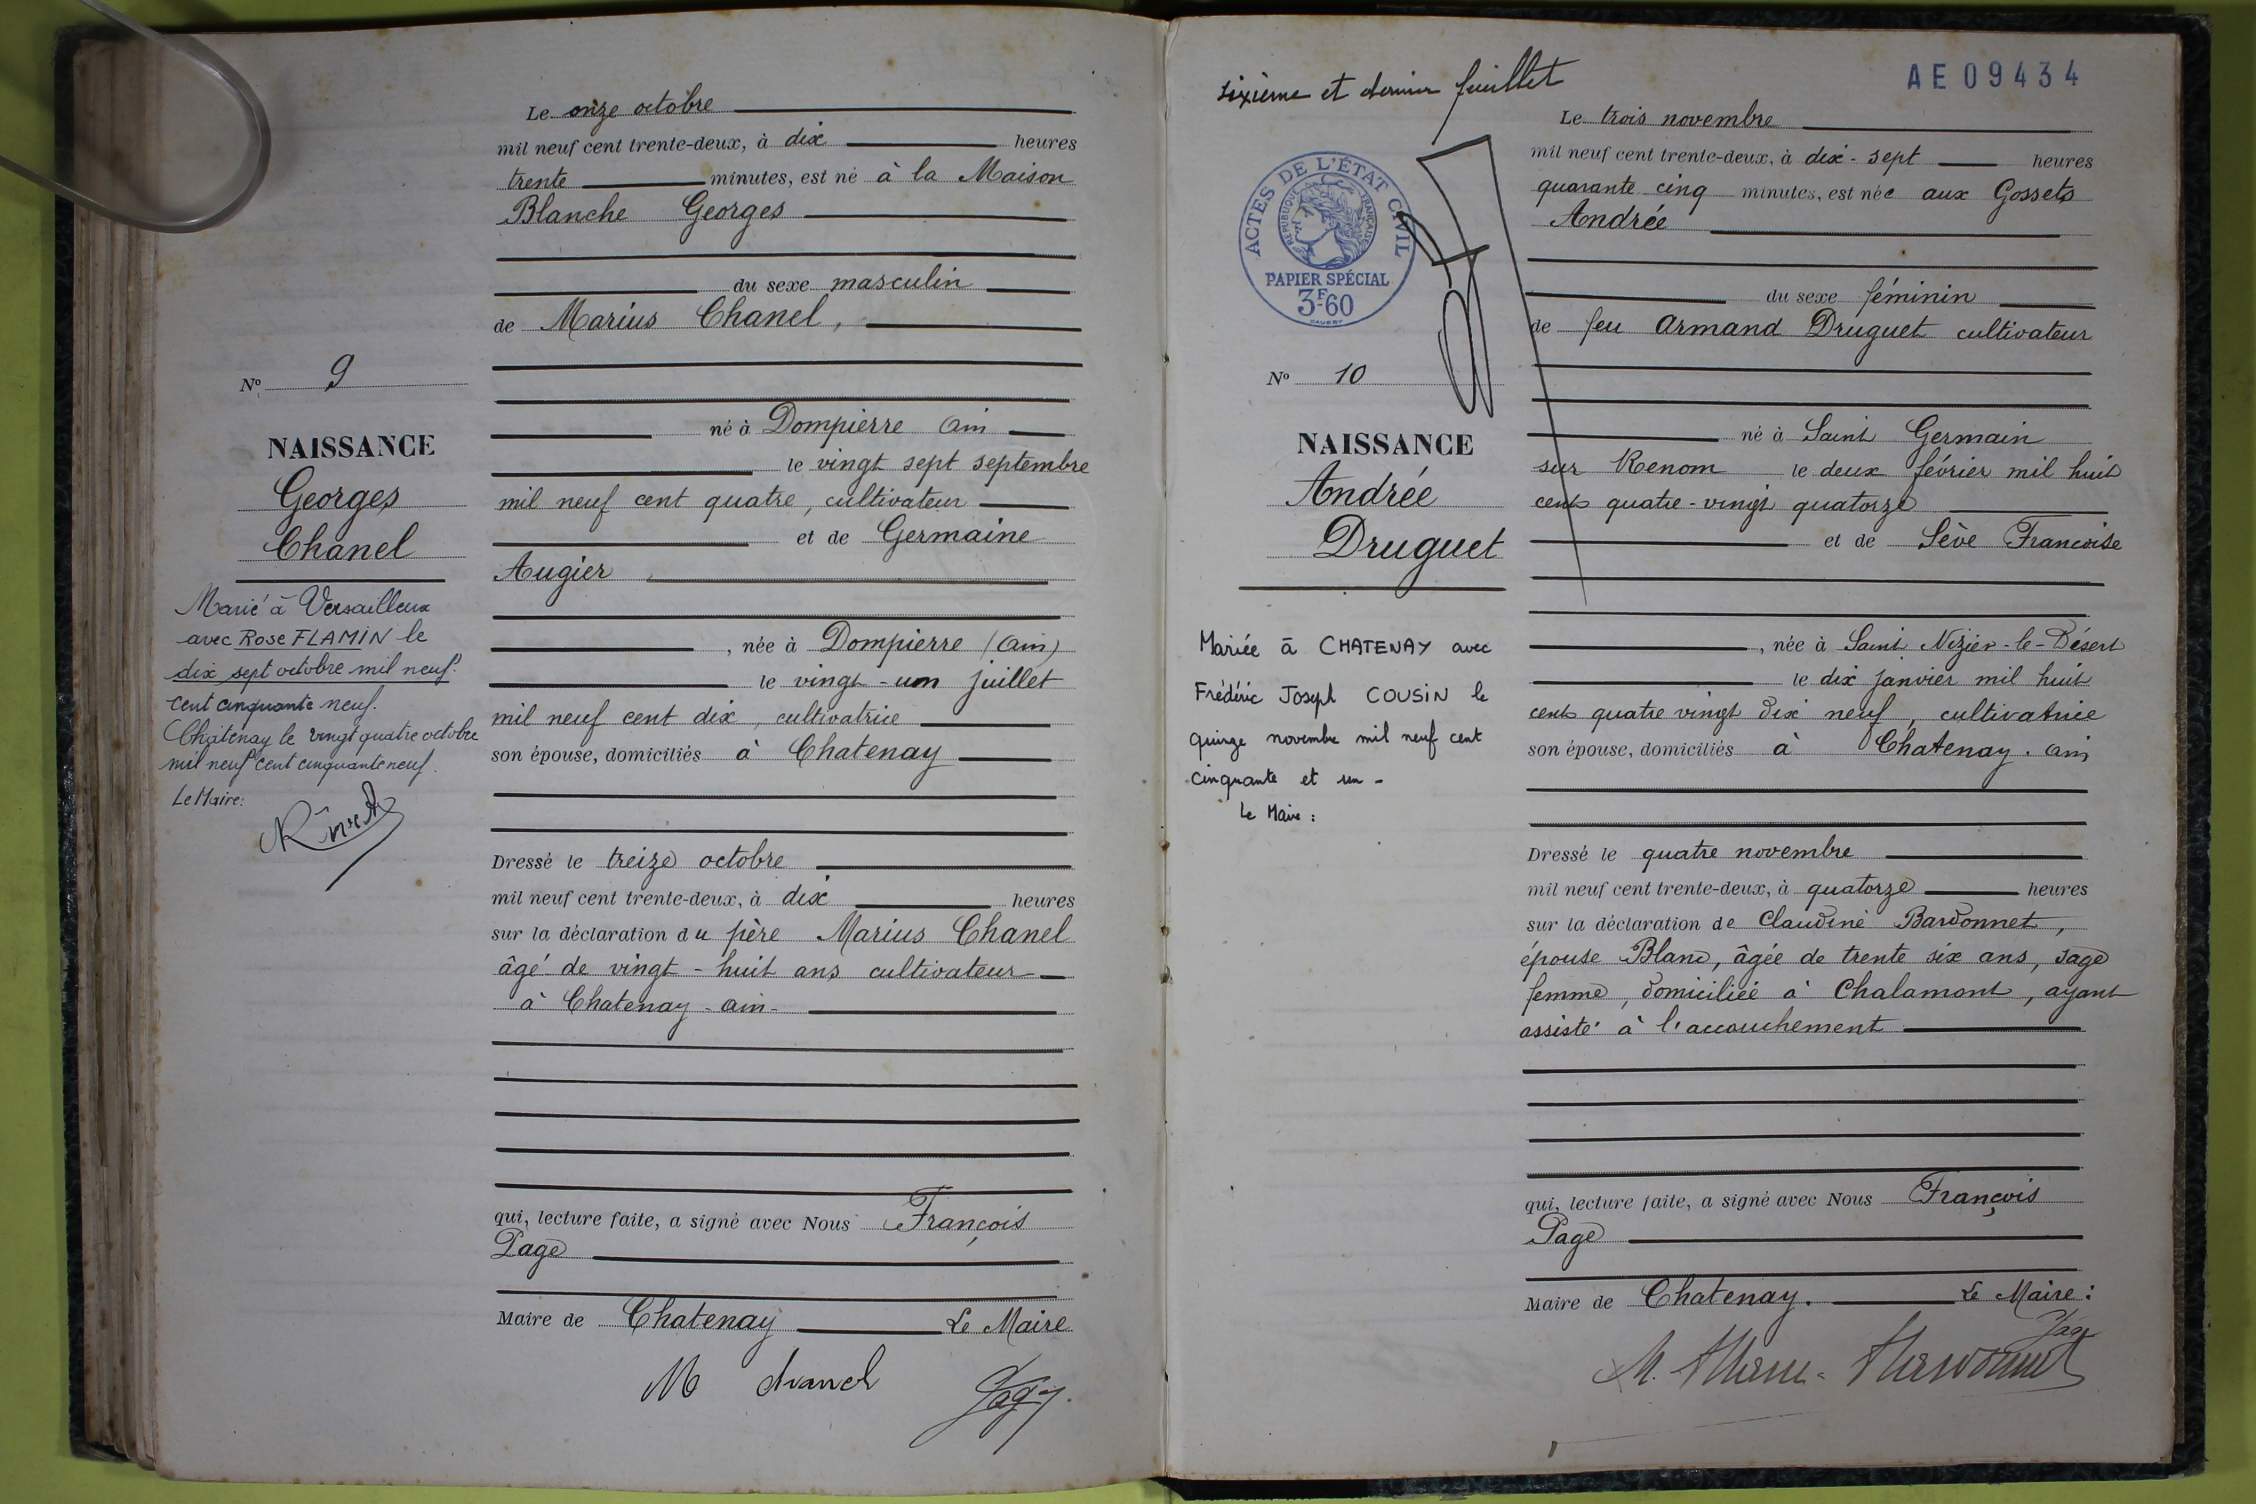 Le onze octobre
mil neuf cent trente-deux, à dix heures
trente minutes, est né à la Maison
Blanche Georges
du sexe masculin
de Marius Chanel,
né à Dompierre Ain
le vingt sept septembre
mil neuf cent quatre, cultivateur
et de Germaine
Augier
, née à Dompierre (Ain)
le vingt-un juillet
mil neuf cent dix, cultivatrice
son épouse, domiciliés à Chatenay
Dressé le treize octobre
mil neuf cent trente-deux, à dix heures
sur la déclaration du père Marius Chanel
âgé de vingt-huit ans cultivateur
à Chatenay-ain-
qui, lecture faite, a signé avec Nous François
Page
Maire de Chatenay Le Maire
M chanel
Page
No 9
NAISSANCE
Georges
Chanel
Marié à Versailleux
avec Rose FLAMIN le
dix sept octobre mil neuf
cent cinquante neuf.
Châtenay le vingt quatre octobre
mil neuf cent cinquante neuf.
Le Maire:
sixième et dernier feuillet
AE09434
ACTES DE L'ÉTAT CIVIL
RÉPUBLIQUE FRANÇAISE
PAPIER SPÉCIAL
3F60
No 10
NAISSANCE
Andrée
Druguet
Mariée à CHATENAY avec
Frédéric Joseph COUSIN le
quinze novembre mil neuf cent
cinquante et un -
Le Maire :
Le trois novembre
mil neuf cent trente-deux, à dix-sept heures
quarante cinq minutes, est née aux Gossets
Andrée
du sexe féminin
de feu Armand Druguet cultivateur
né à Saint Germain
sur Renom le deux février mil huit
cents quatre-vingt quatorze
et de Sève Francoise
, née à Saint Nizier-le-Désert
le dix janvier mil huit
cents quatre vingt dix neuf, cultivatrice
son épouse, domiciliés à Chatenay. ain
Dressé le quatre novembre
mil neuf cent trente-deux, à quatorze heures
sur la déclaration de Claudine Bardonnet,
épouse Blanc, âgée de trente six ans, sage
femme, domiciliée à Chalamont, ayant
assisté à l'accouchement
qui, lecture faite, a signé avec Nous François
Page
Maire de Chatenay. Le Maire:
Page